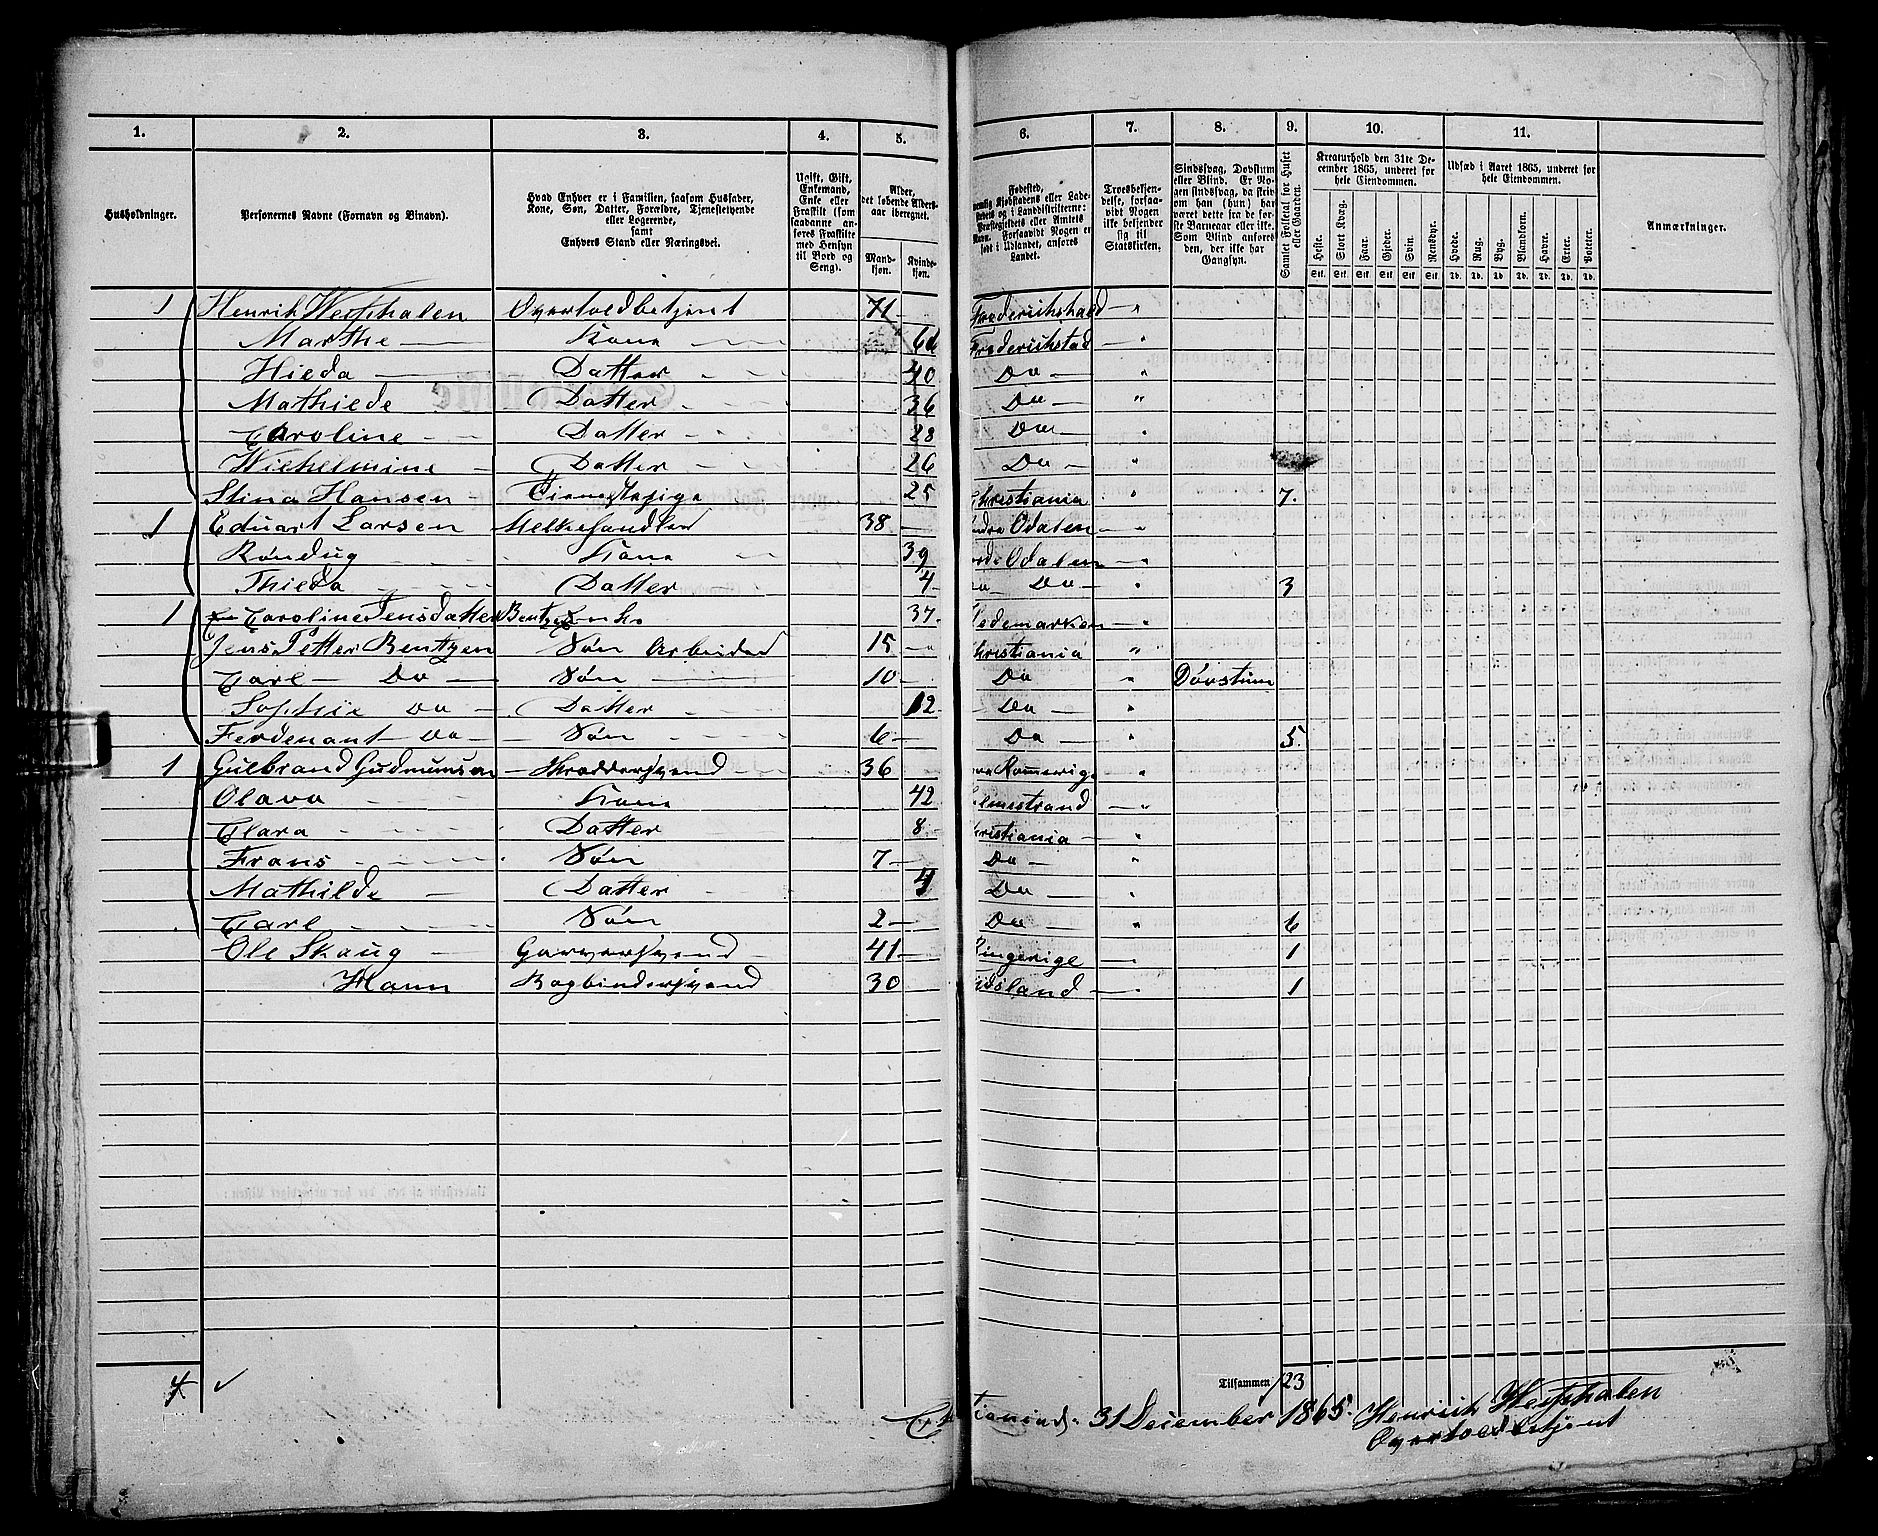 1. 2. 3. 4. 5. 6. 7. 8. 9. 10. 11.
Husholdninger.
Personernes Navne (Fornavn og Binavn).
Hvad Enhver er i Familien, saasom Husfader,
Kone, Søn, Datter, Forældre, Tjenestetyende
eller Logerende,
samt
Enhvers Stand eller Næringsvei.
Ugift, Gift,
Enkemand,
Enke eller
Fraskilt (som
saadanne an-
føres Fraskilte
med Hensyn
til Bord og
Seng).
Alder,
det løbende Alders-
aar iberegnet.
Mand-
kjøn.
Kvinde-
kjøn.
Fødested,
nemlig Kjøbstadens eller Lade-
stedets og i Landdistrikterne:
Præstegjeldets eller Amtets
Navn. Forsaavidt Nogen er
født i Udlandet, anføres
Landet.
Troesbekjen-
delse, forsaa-
vidt Nogen
ikke bekjender
sig til
Statskirken.
Sindssvag, Døvstum
eller Blind. Er No-
gen sindssvag, da skriv
om han (hun) har
været dette fra de før-
ste Barneaar eller ikke.
Som Blind anføres
den, der ikke har
Gangsyn.
Samlet Folketal for Huset
eller Gaarden.
Kreaturhold den 31te De-
cember 1865, underet for
hele Eiendommen.
Heste. Stort Kvæg. Faar. Gjeder. Svin. Rensdyr.
Stk. Stk. Stk. Stk. Stk. Stk.
Udsæd i Aaret 1865, underet for
hele Eiendommen.
Hvede. Rug. Byg. Blandkorn. Havre. Erter. Poteter.
Td. Td. Td. Td. Td. Td. Td.
Anmærkninger.
1 Henrik Westphalen Overtoldbetjent 71 — Frederikshald — "
Marthe — Kone — Frederikstad — "
Hieda — Datter 40 Do — "
Mathiede Datter 36 Do — "
Caroline — Datter 28 Do — "
Wiehelmine — Datter 26 Do — "
Stina Hansen — Tienestepige 25 Christiania " 7.
1 Eduart Larsen Melkehandler 38 — Odalen — "
Røndug Kone 39 Odalen — "
Thieda Datter — 4 — Do — " 3
1 Caroline Jensdatter Bentzen Enke 37 Hedemarken — "
Jens Petter Bentzen Søn Arbeider 15 — Christiania "
Carl — Do — Søn 10 — Do " Døvstum
Sophie Do — Datter 12 Do — "
Ferdenant Do — Søn 6 — Do " 5.
1 Gulbrand Gudmunsen — Skræddersvend — 36 Romerige "
Olava Kone 42 Holmestrand — "
Clara Datter 8 Christiania — "
Frans Søn 7 — Do — "
Mathilde — Datter 4 Do — "
Carl Søn 2 — Do — " 6
Ole Skaug — Garversvend — 41 — Ringerige — " 1
Hann Bogbindersvend 30 Tydsland — " 1
4 ✓
Tilsammen 23
Christiania d. 31 December 1865. Henrich Westphalen
Overtoldbetjent